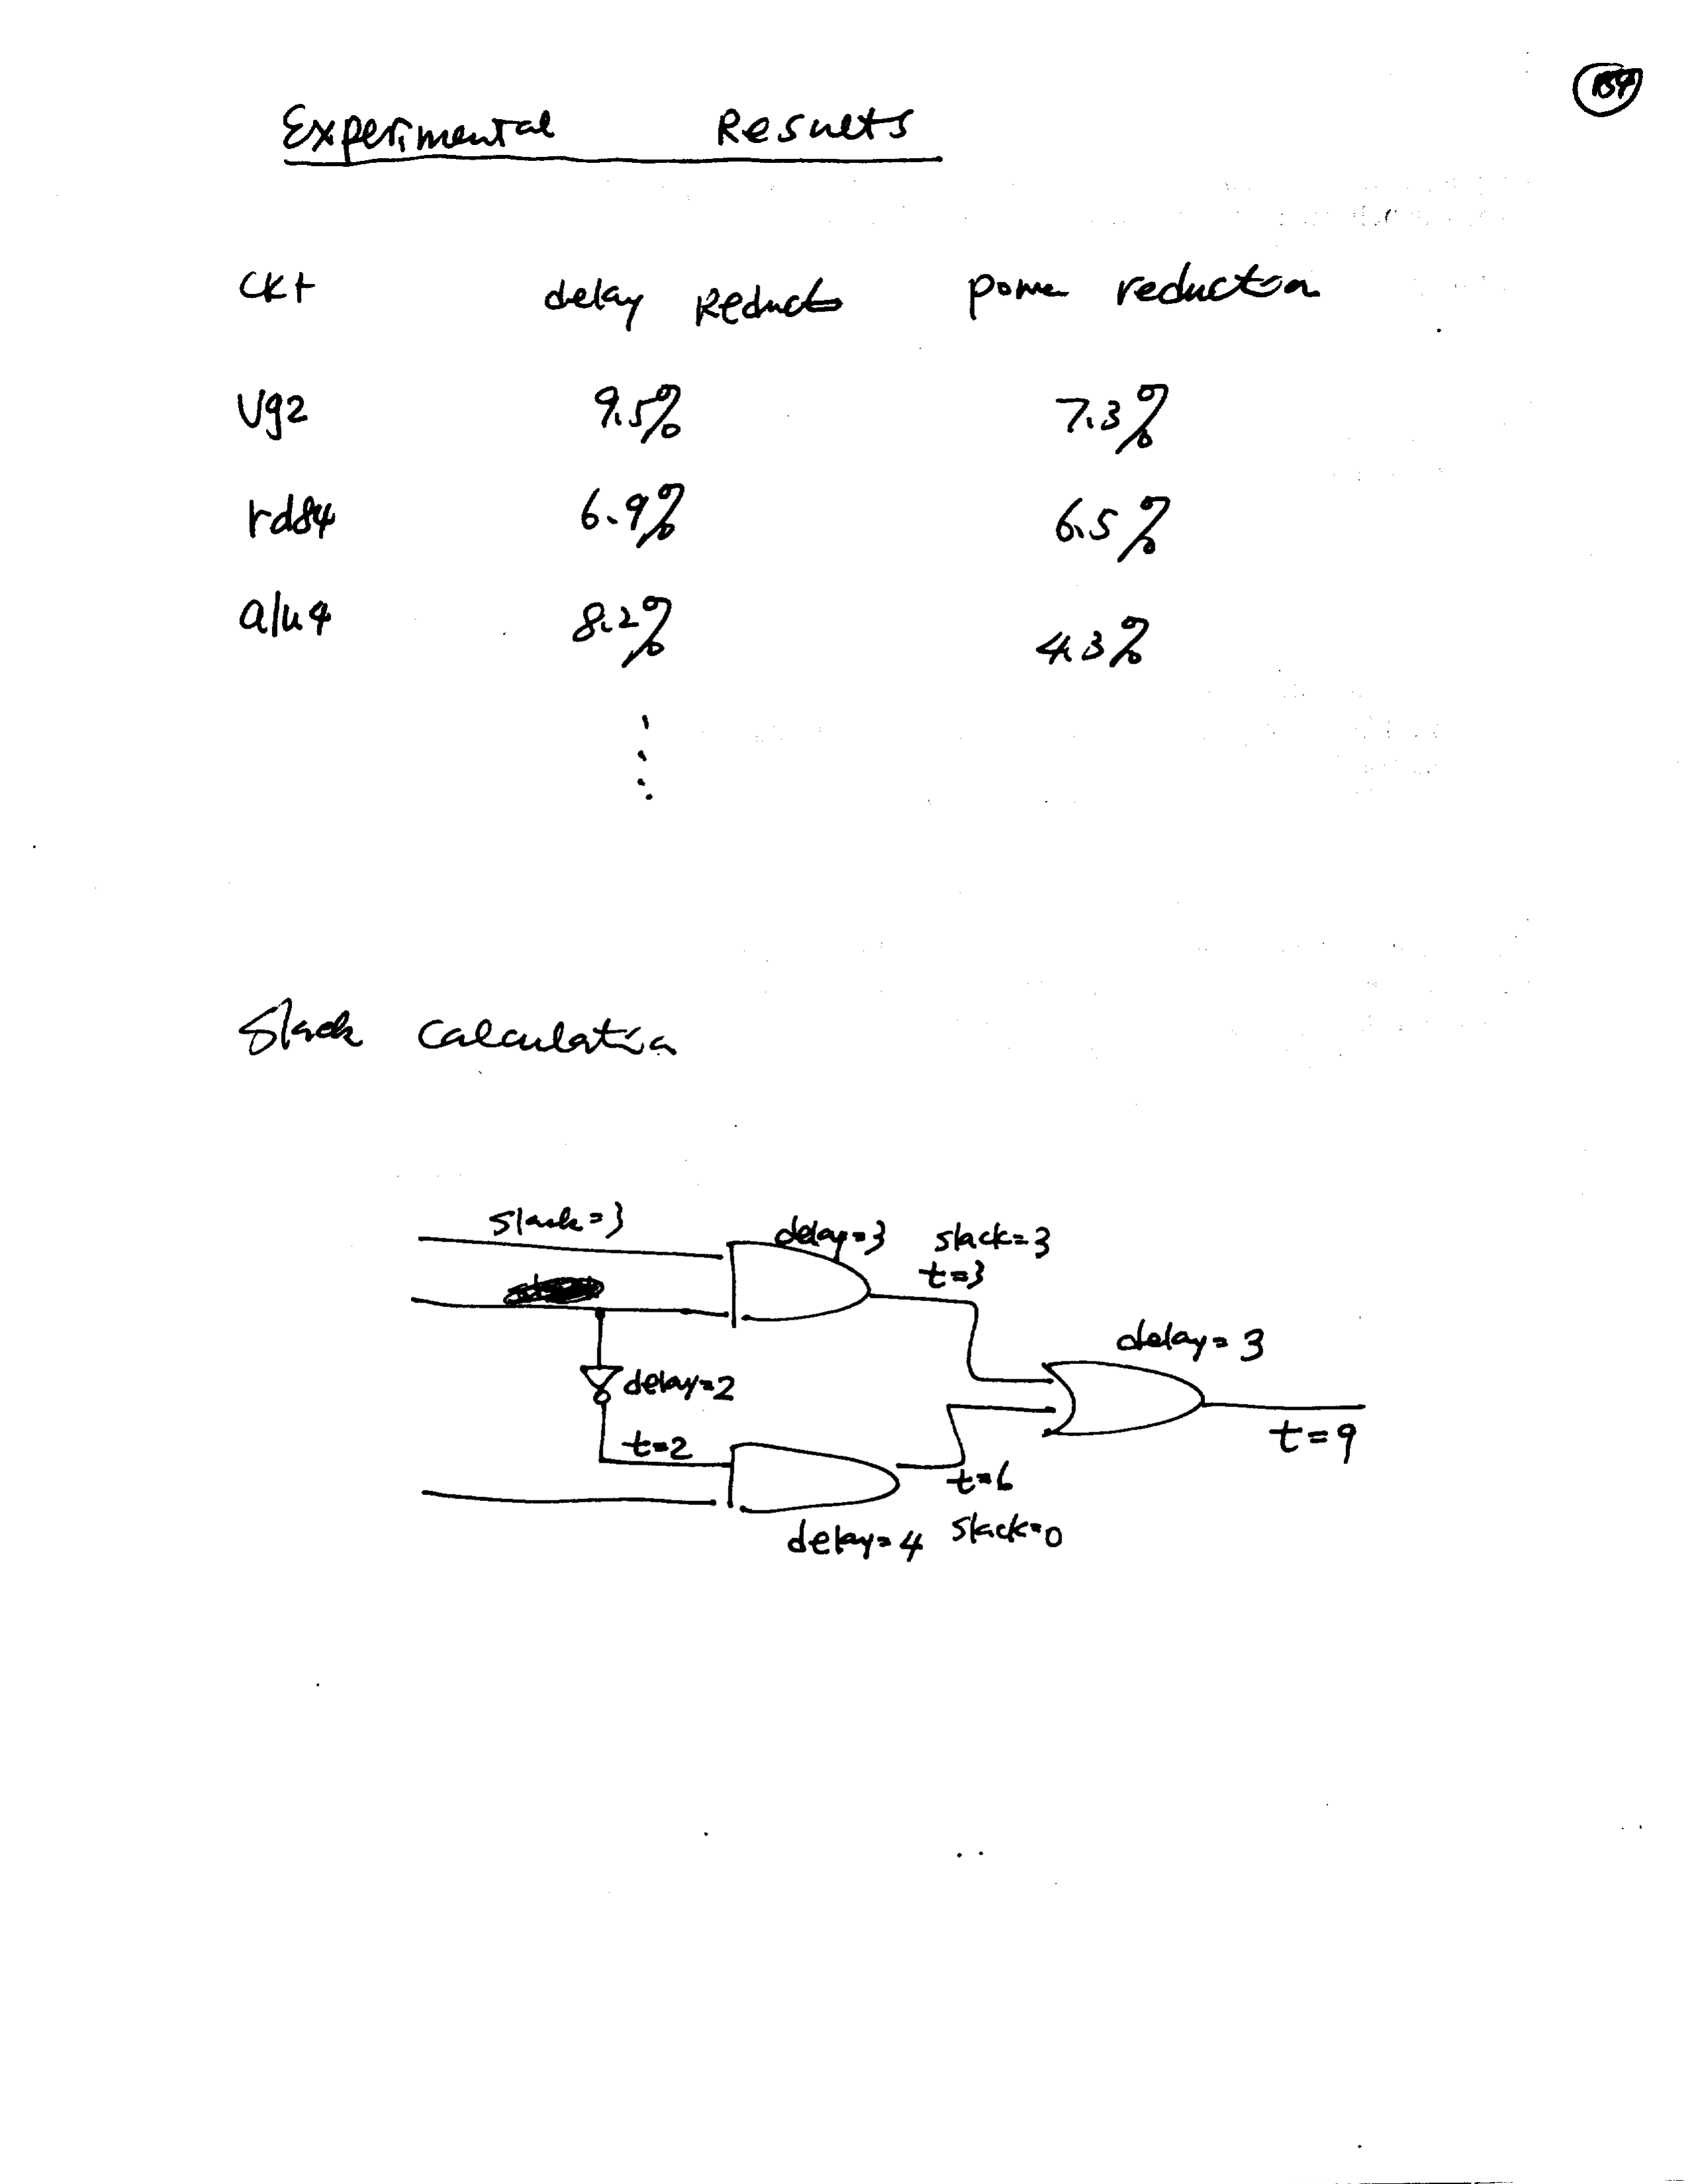 Experimental Results
Ckt delay Reduct power reduction
Vg2 9.5% 7.3%
rd84 6.9% 6.5%
alu4 8.2% 4.3%
Slack Calculation
slack=3
delay=3
slack=3
t=3
delay=3
delay=2
t=2
t=9
t=6
delay=4
slack=0